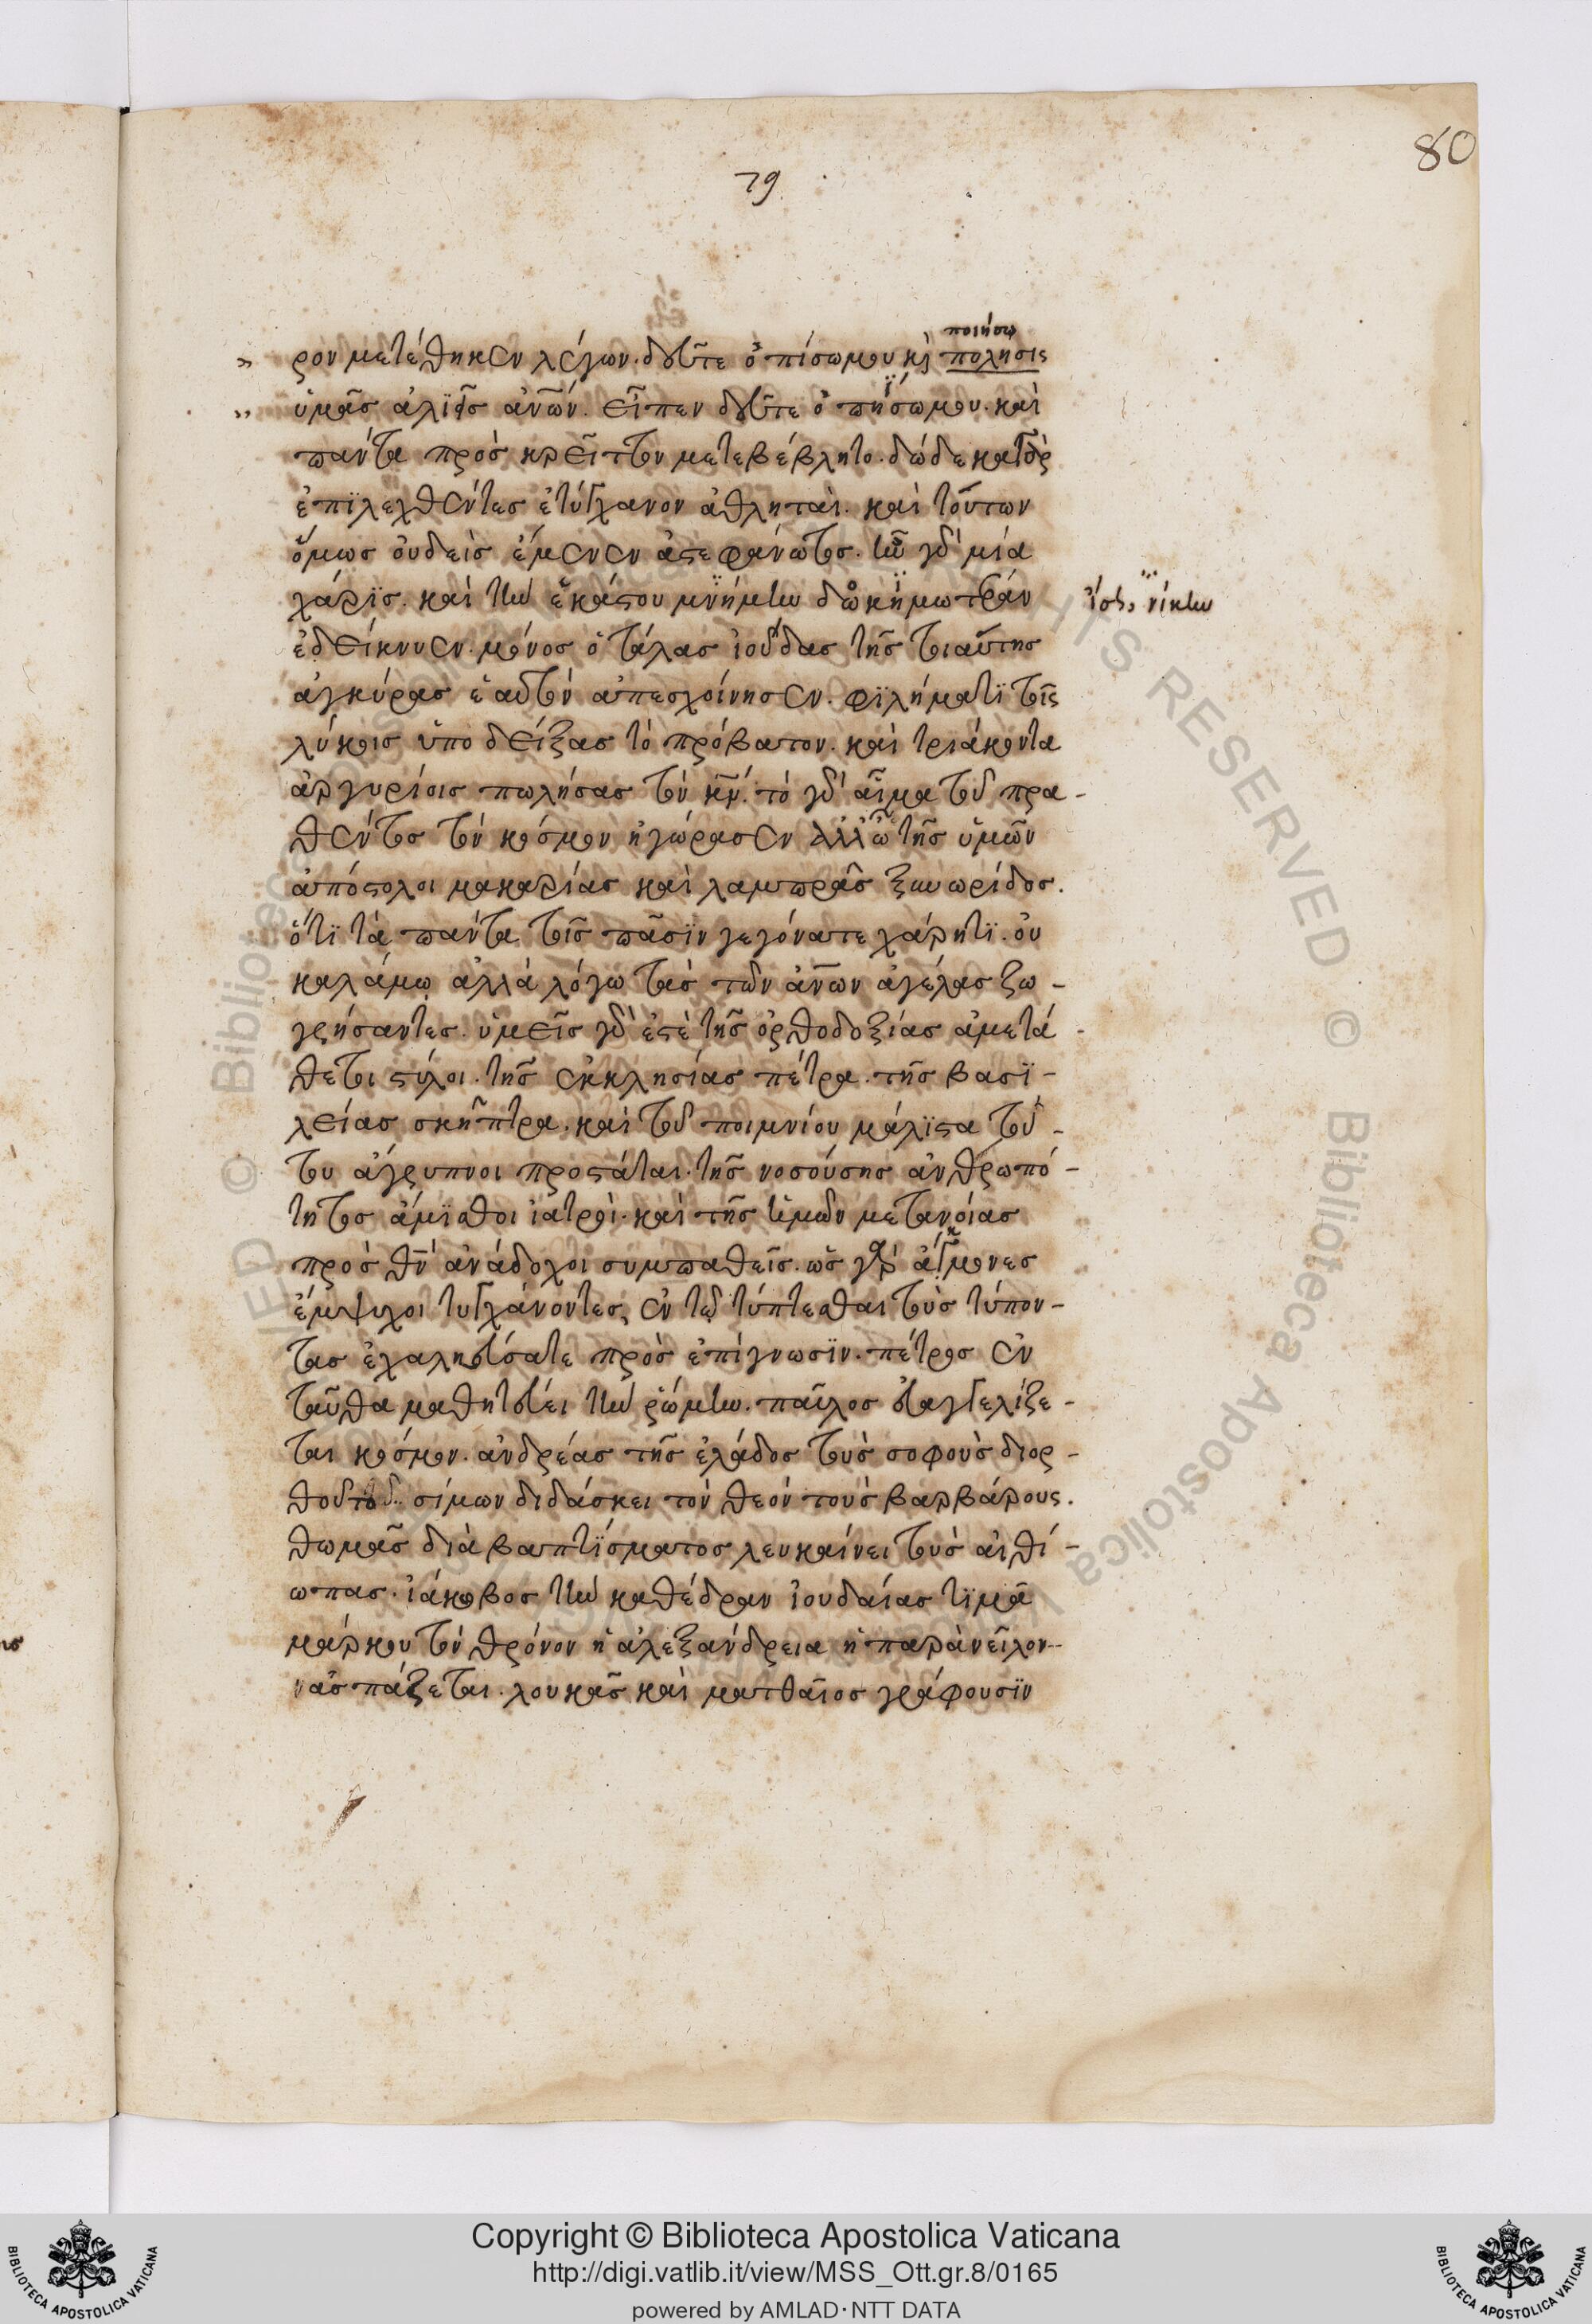 80
79
ποιήσω
ρον μετέθηκεν λέγων. δεῦτε ὀπίσωμου κὶ πολησις
ὑμᾶς ἁλϊεῖς ἀν̅ων. εἶπεν δεῦτε ὀπήσωμου. καὶ
πάντα πρὸς κρεῖττον μετεβέβλητο. δώδεκα
ἐπϊλεχθέντες ἐτύγχανον ἀθληταὶ. καὶ τούτων
ὅμως οὐδεὶς ἔμενεν ἀστεφάνωτος. μία
χάρϊς. καὶ τὴν ἑκάστου μνήμην
ἐδείκνυεν. μόνος ὁ τάλας ἰούδας τῆς τοιαύτης
ἀγκύρας ἑαυτὸν ἀπεσχοίνησεν. φϊλήματϊ τοῖς
λύκοις ὑποδείξας τὸ πρόβατον. καὶ τριάκοντα
ἀργυρίοις πωλήσας τὸν κν̅. τὸ γὰρ αἷμα τοῦ πρα-
θέντος τὸν κόσμον ἠγώρασεν ἀλλ' ὦ τῆς ὑμῶν
ἀπόστολοι μακαρίας καὶ λαμπρᾶς ξυνωρίδος.
ὅτϊ τὰ πάντα τοῖς πᾶσϊν γεγόνατε χάρητϊ. οὐ
καλάμω ἀλλὰ λόγω τὰς τῶν ἀν̅ων ἀγέλας ζω-
γρήσαντες. ὑμεῖς γὰρ ἐστὲ τῆς ὀρθοδοξίας ἀμετά-
θετοι στύλοι. τῆς ἐκκλησίας πέτρα. τῆς βασϊ-
λείας σκῆπτρα. καὶ τοῦ ποιμνίου μάλϊστα τού-
του ἄγρυπνοι προστάται. τῆς νοσούσης ἀνθρωπό-
τητος ἄμϊσθοι ἰατροὶ. καὶ τῆς ἡμῶν μετανοίας
πρὸς θν̅ ἀνάδοχοι συμπαθεῖς. ὡς γὰρ ἄκμονες
ἔμψυχοι τυγχάνοντες, ἐν τῶ τύπτεσθαι τοὺς τύπον-
τας ἐχαληνεύσατε πρὸς ἐπίγνωσϊν. πέτρος ἐν
ταῦθα μαθητεύει τὴν ῥώμην. παῦλος εὐαγγελίζε-
ται κόσμον. ἀνδρέας τῆς ἐλάδος τοὺς σοφοὺς διορ-
θοῦτο. σίμων διδάσκει τὸν θεὸν τοὺς βαρβάρους.
θωμᾶς διὰ βαπτϊσματος λευκαίνει τοὺς αἰθί-
ωπας. ἰάκωβος τὴν καθέδραν ἰουδαίας τϊμᾶ
μάρκου τὸν θρόνον ἡ ἀλεξάνδρεια ἡ παρὰ νεῖλον-
νασπάζεται. λουκᾶς καὶ ματθαῖος γράφουσϊν
Copyright © Biblioteca Apostolica Vaticana
http://digi.vatlib.it/view/MSS_Ott.gr.8/0165
powered by AMLAD·NTT DATA
BIBLIOTECA APOSTOLICA VATICANA
BIBLIOTECA APOSTOLICA VATICANA